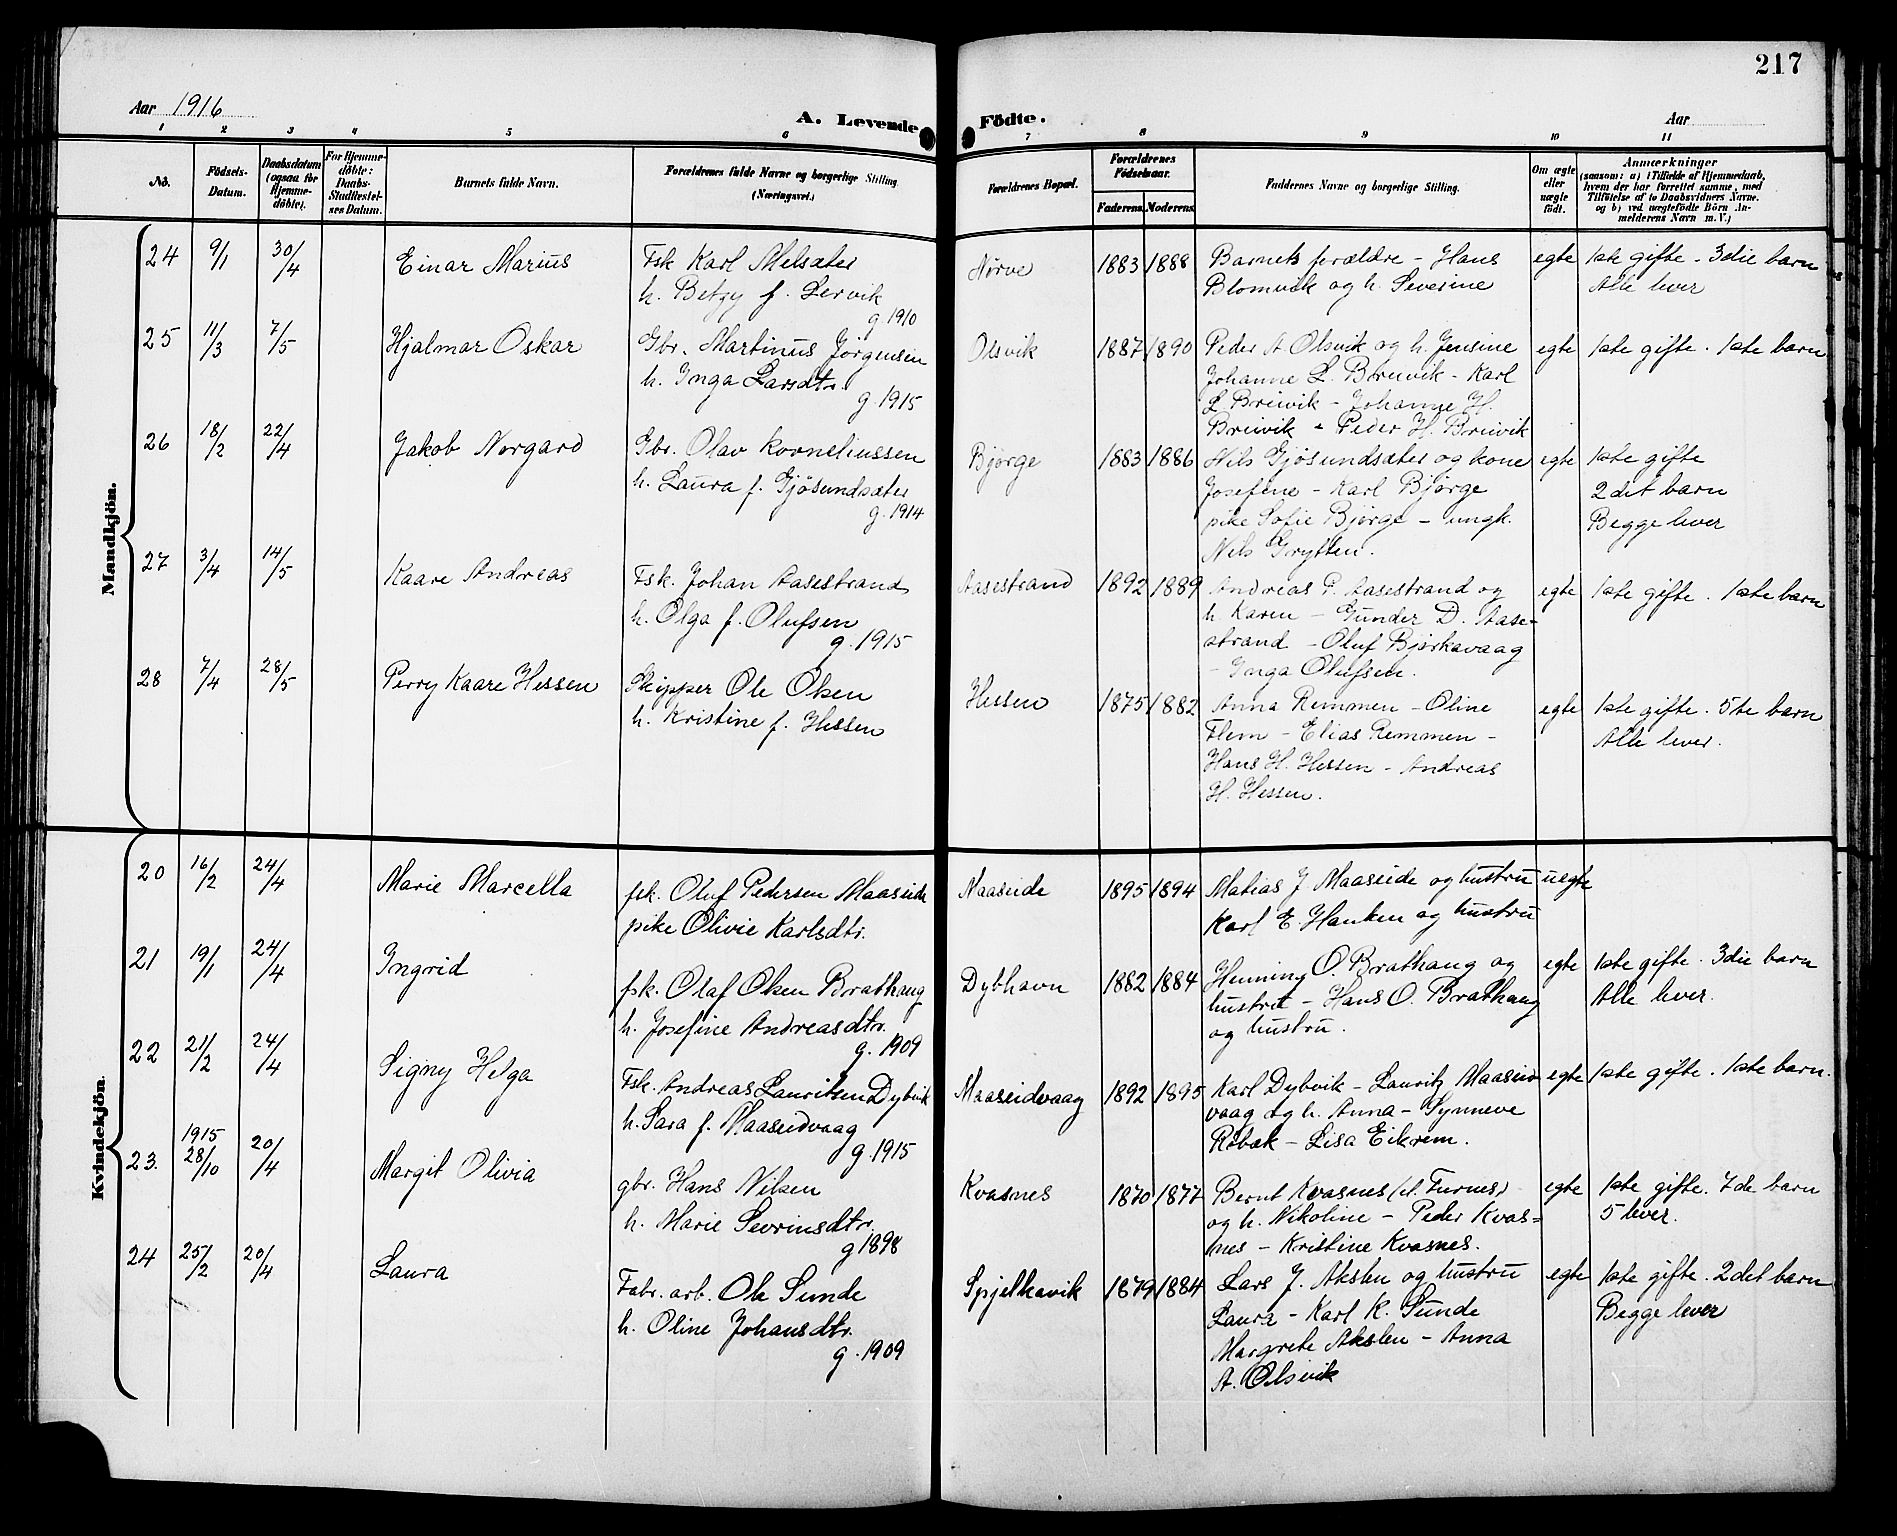 217
Aar 1916
A. Levende Födte.
Aar
1 2 3 4 5 6 7 8 9 10 11
No.
Födsels-Datum.
Daabsdatum (ogsaa for Hjemme-döbte).
For Hjemme-döbte: Daabs-Stadfæstel-ses Datum.
Barnets fulde Navn.
Forældrenes fulde Navne og borgerlige Stilling (Næringsvei.)
Forældrenes Bopæl.
Forældrenes Födselsaar.
Faderens. Moderens.
Faddernes Navne og borgerlige Stilling.
Om ægte eller uægte födt.
Anmærkninger
(saasom: a) i Tilfælde af Hjemmedaab,
hvem der har forrettet samme, med
Tilföielse af to Daabsvidners Navne.
og b) ved uægtefödte Börn An-
melderens Navn m. V.)
Mandkjön.
24 9/1 30/4 Einar Marius Fsk Karl Melsæter Nørve 1883 1888 Barnets forældre - Hans egte 1ste gifte - 3die barn
h. Betzy f. Lervik Blomvik og h. Severine Alle lever
g. 1910
25 11/3 7/5 Hjalmar Oskar Gbr. Martinus Jørgensen Olsvik 1887 1890 Peder A Olsvik og h. Jensine egte 1ste gifte. 1ste barn
h. Inga Larsdtr. Johanne L. Breivik - Karl
g. 1915 L Breivik - Johanne H.
Breivik - Peder H. Breivik
26 18/2 22/4 Jakob Norgard Gbr. Olav Korneliussen Bjørge 1883 1886 Nils Gjøsundsæter og kone egte 1ste gifte
h. Laura f. Gjøsundsæter Josefine - Karl Bjørge 2det barn
g. 1914 pike Sofie Bjørge - ungk. Begge lever
Nils Grytten.
27 3/4 14/5 Kaare Andreas Fsk. Johan Aasestrand Aasestrand 1892 1889 Andreas P. Aasestrand og egte 1ste gifte. 1ste barn
h. Olga f. Olufsen h. Karen - Gunder D. Aase-
g. 1915 strand - Oluf Bjørkavaag
- Inga Olufsen.
28 7/4 28/5 Perry Kaare Hessen Skipper Ole Olsen Hessen 1875 1882 Anna Remmen - Oline egte 1ste gifte. 5te barn
h. Kristine f. Hessen Flem - Elias Remmen - Alle lever.
Hans H. Hessen - Andreas
H. Hessen.
Kvindekjön.
20 16/2 24/4 Marie Marcella fsk. Oluf Pedersen Maaseide Maaseide 1895 1894 Matias J Maaseide og hustru uegte
pike Olivie Karlsdtr. Karl E. Hanken og hustru
21 19/1 24/4 Ingrid fsk. Olaf Olsen Brathaug Dybhavn 1882 1884 Henning O. Brathaug og egte 1ste gifte. 3die barn
h. Josefine Andreasdtr. hustru - Hans O. Brathaug Alle lever.
g. 1909 og hustru.
22 21/2 24/4 Signy Helga Fsk. Andreas Lauritsen Dybvik Maaseidvaag 1892 1895 Karl Dybvik - Lauritz Maaseid- egte 1ste gifte. 1ste barn.
h. Sara f. Maaseidvaag vaag og h. Anna - Synneve
g. 1915 Røbæk - Lisa Eikrem.
23. 1915 28/10 20/4 Margit Olivia gbr. Hans Nilsen Kvasnes 1870 1877 Bernt Kvasnes (el. Furnes) egte 1ste gifte. 7de barn
h. Marie Sevrinsdtr. og h. Nikoline - Peder Kvas- 5 lever.
g 1898 nes - Kristine Kvasnes.
24 25/2 20/4 Laura Fabr. arb. Ole Sunde Spjelkavik 1879 1884 Lars J. Akslen og hustru egte 1ste gifte. 2det barn
h. Oline Johansdtr. Laura - Karl K. Sunde Begge lever
g. 1909 Margrete Akslen - Anna
A. Olsvik